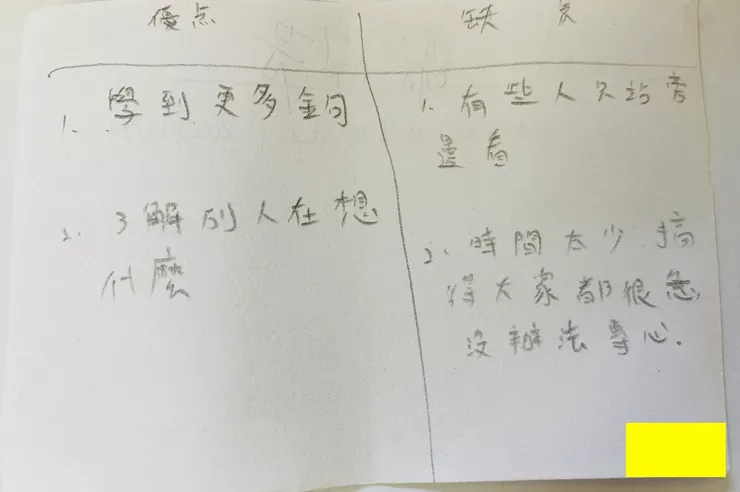 優点
1. 學到更多金句
2. 了解別人在想
什麼
缺点
1. 有些人只站旁
邊看
2. 時間太少.搞
得大家都很急,
沒辦法專心.